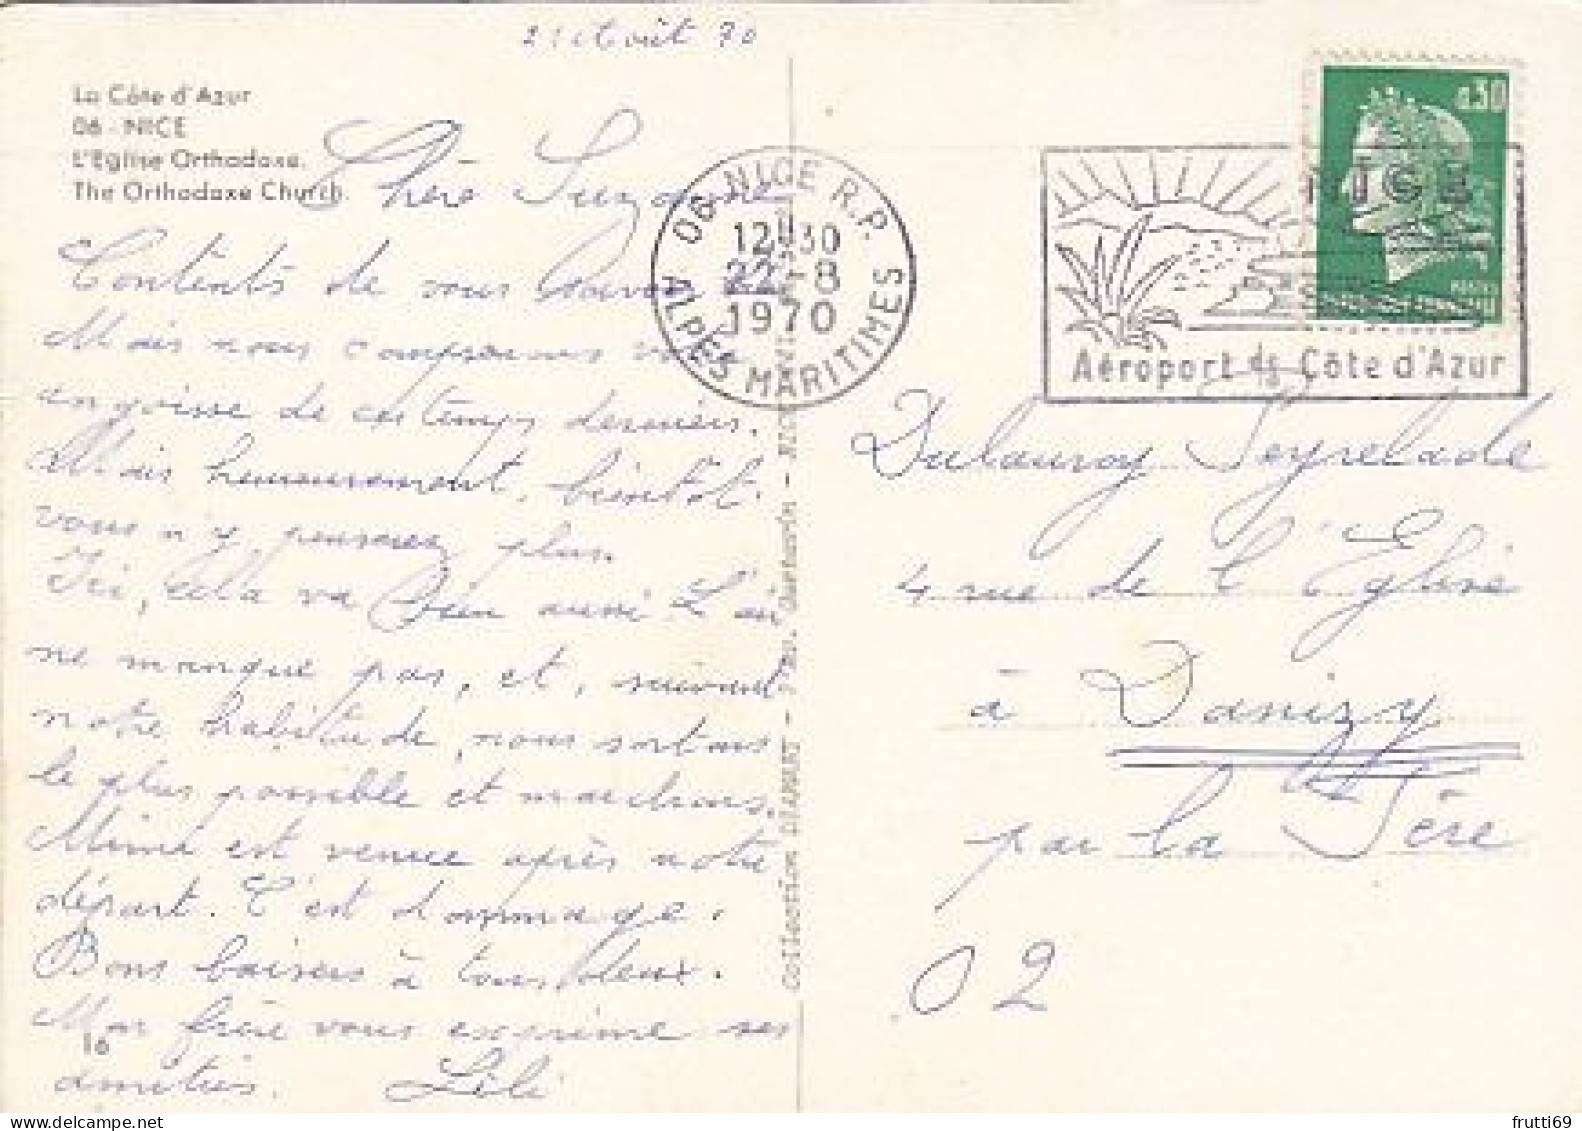 21 Août 70
La Côte d'Azur
06 - NICE
L'Eglise Orthodoxe.
The Orthodoxe Church.
Chère Suzanne
Contents de vous savoir
Mais nous comprenons votre
angoisse de ces temps derniers.
Mais heureusement, bientôt
vous n'y penserez plus.
Ici, cela va bien aussi. L'air
ne manque pas, et, suivant
notre habitude, nous sortons
le plus possible et marchons.
Mimi est venue après notre
départ. C'est dommage.
Bons baisers à tous deux.
Mon frère vous exprime ses
amitiés. Lili
16
Collection DIAMANT - NICE
06 NICE R.P.
12H30
22-8
1970
ALPES MARITIMES
0,30
POSTES
NICE
Aéroport de la Côte d'Azur
Dulauroy Seyrelade
4 rue de l'Eglise
à Danizy
par La Fère
02
frutti69